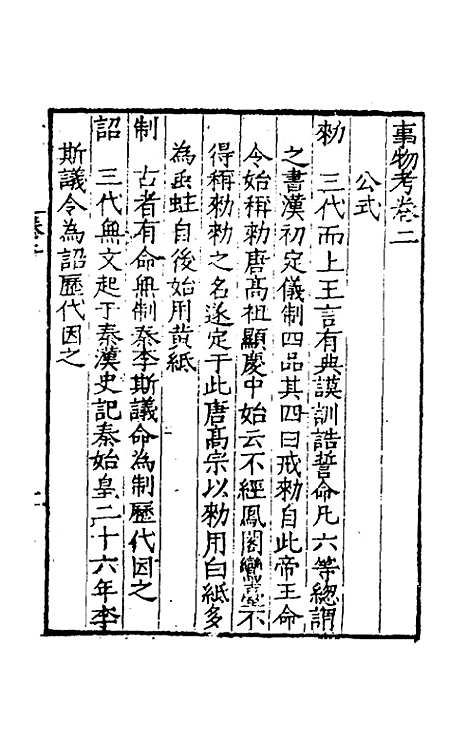 事物考卷二
公式
勑　三代而上王言有典謨訓誥誓命凡六等緫謂
之書漢初定儀制四品其四曰戒勑自此帝王命
令始稱勑唐髙祖顯慶中始云不經鳳閣鸞臺不
得稱勑勑之名遂定于此唐髙宗以勑用白紙多
為䖝蛀自後始用黄紙
制　古者有命無制秦李斯議命為制歷代因之
詔　三代無文起于秦漢史記秦始皇二十六年李
斯議令為詔歷代因之